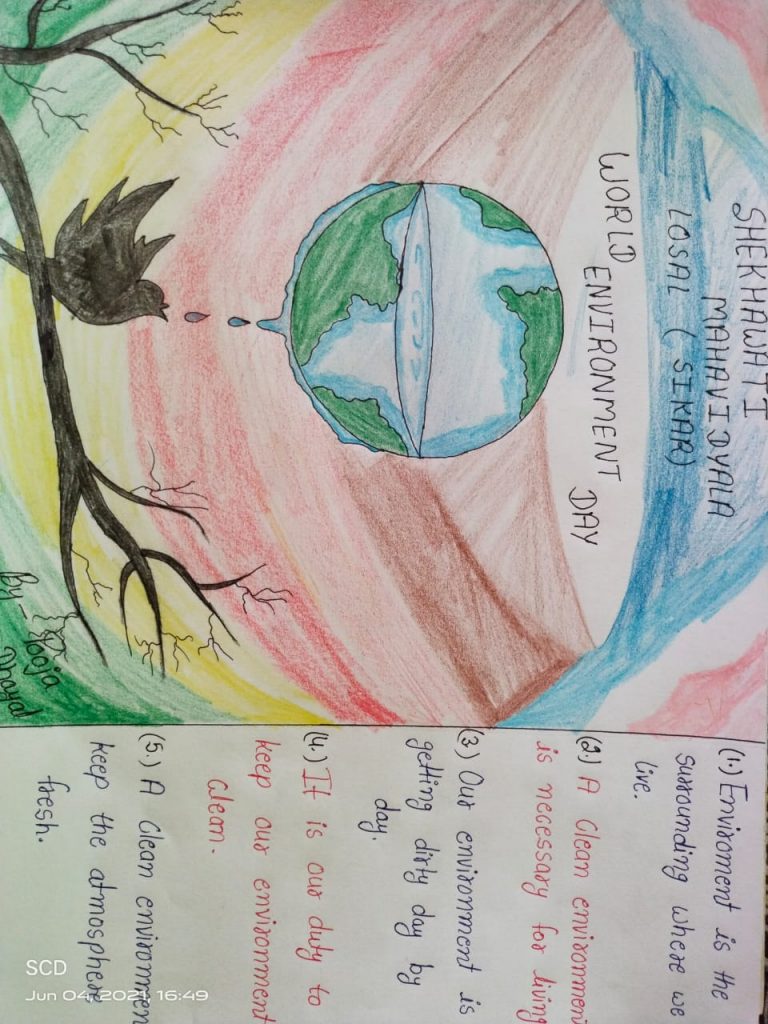 SHEKHAWATI
MAHAVIDYALA
LOSAL ( SIKAR)
WORLD ENVIRONMENT DAY
By- Pooja
Dhayal
(1.) Enviroment is the
surrounding where we
live.
(2.) A clean environment
is necessary for living
(3.) Our environment is
getting dirty day by
day.
(4.) It is our duty to
keep our environment
clean.
(5.) A clean environmen
keep the atmosphere
fresh.
SCD
Jun 04, 2021, 16:49